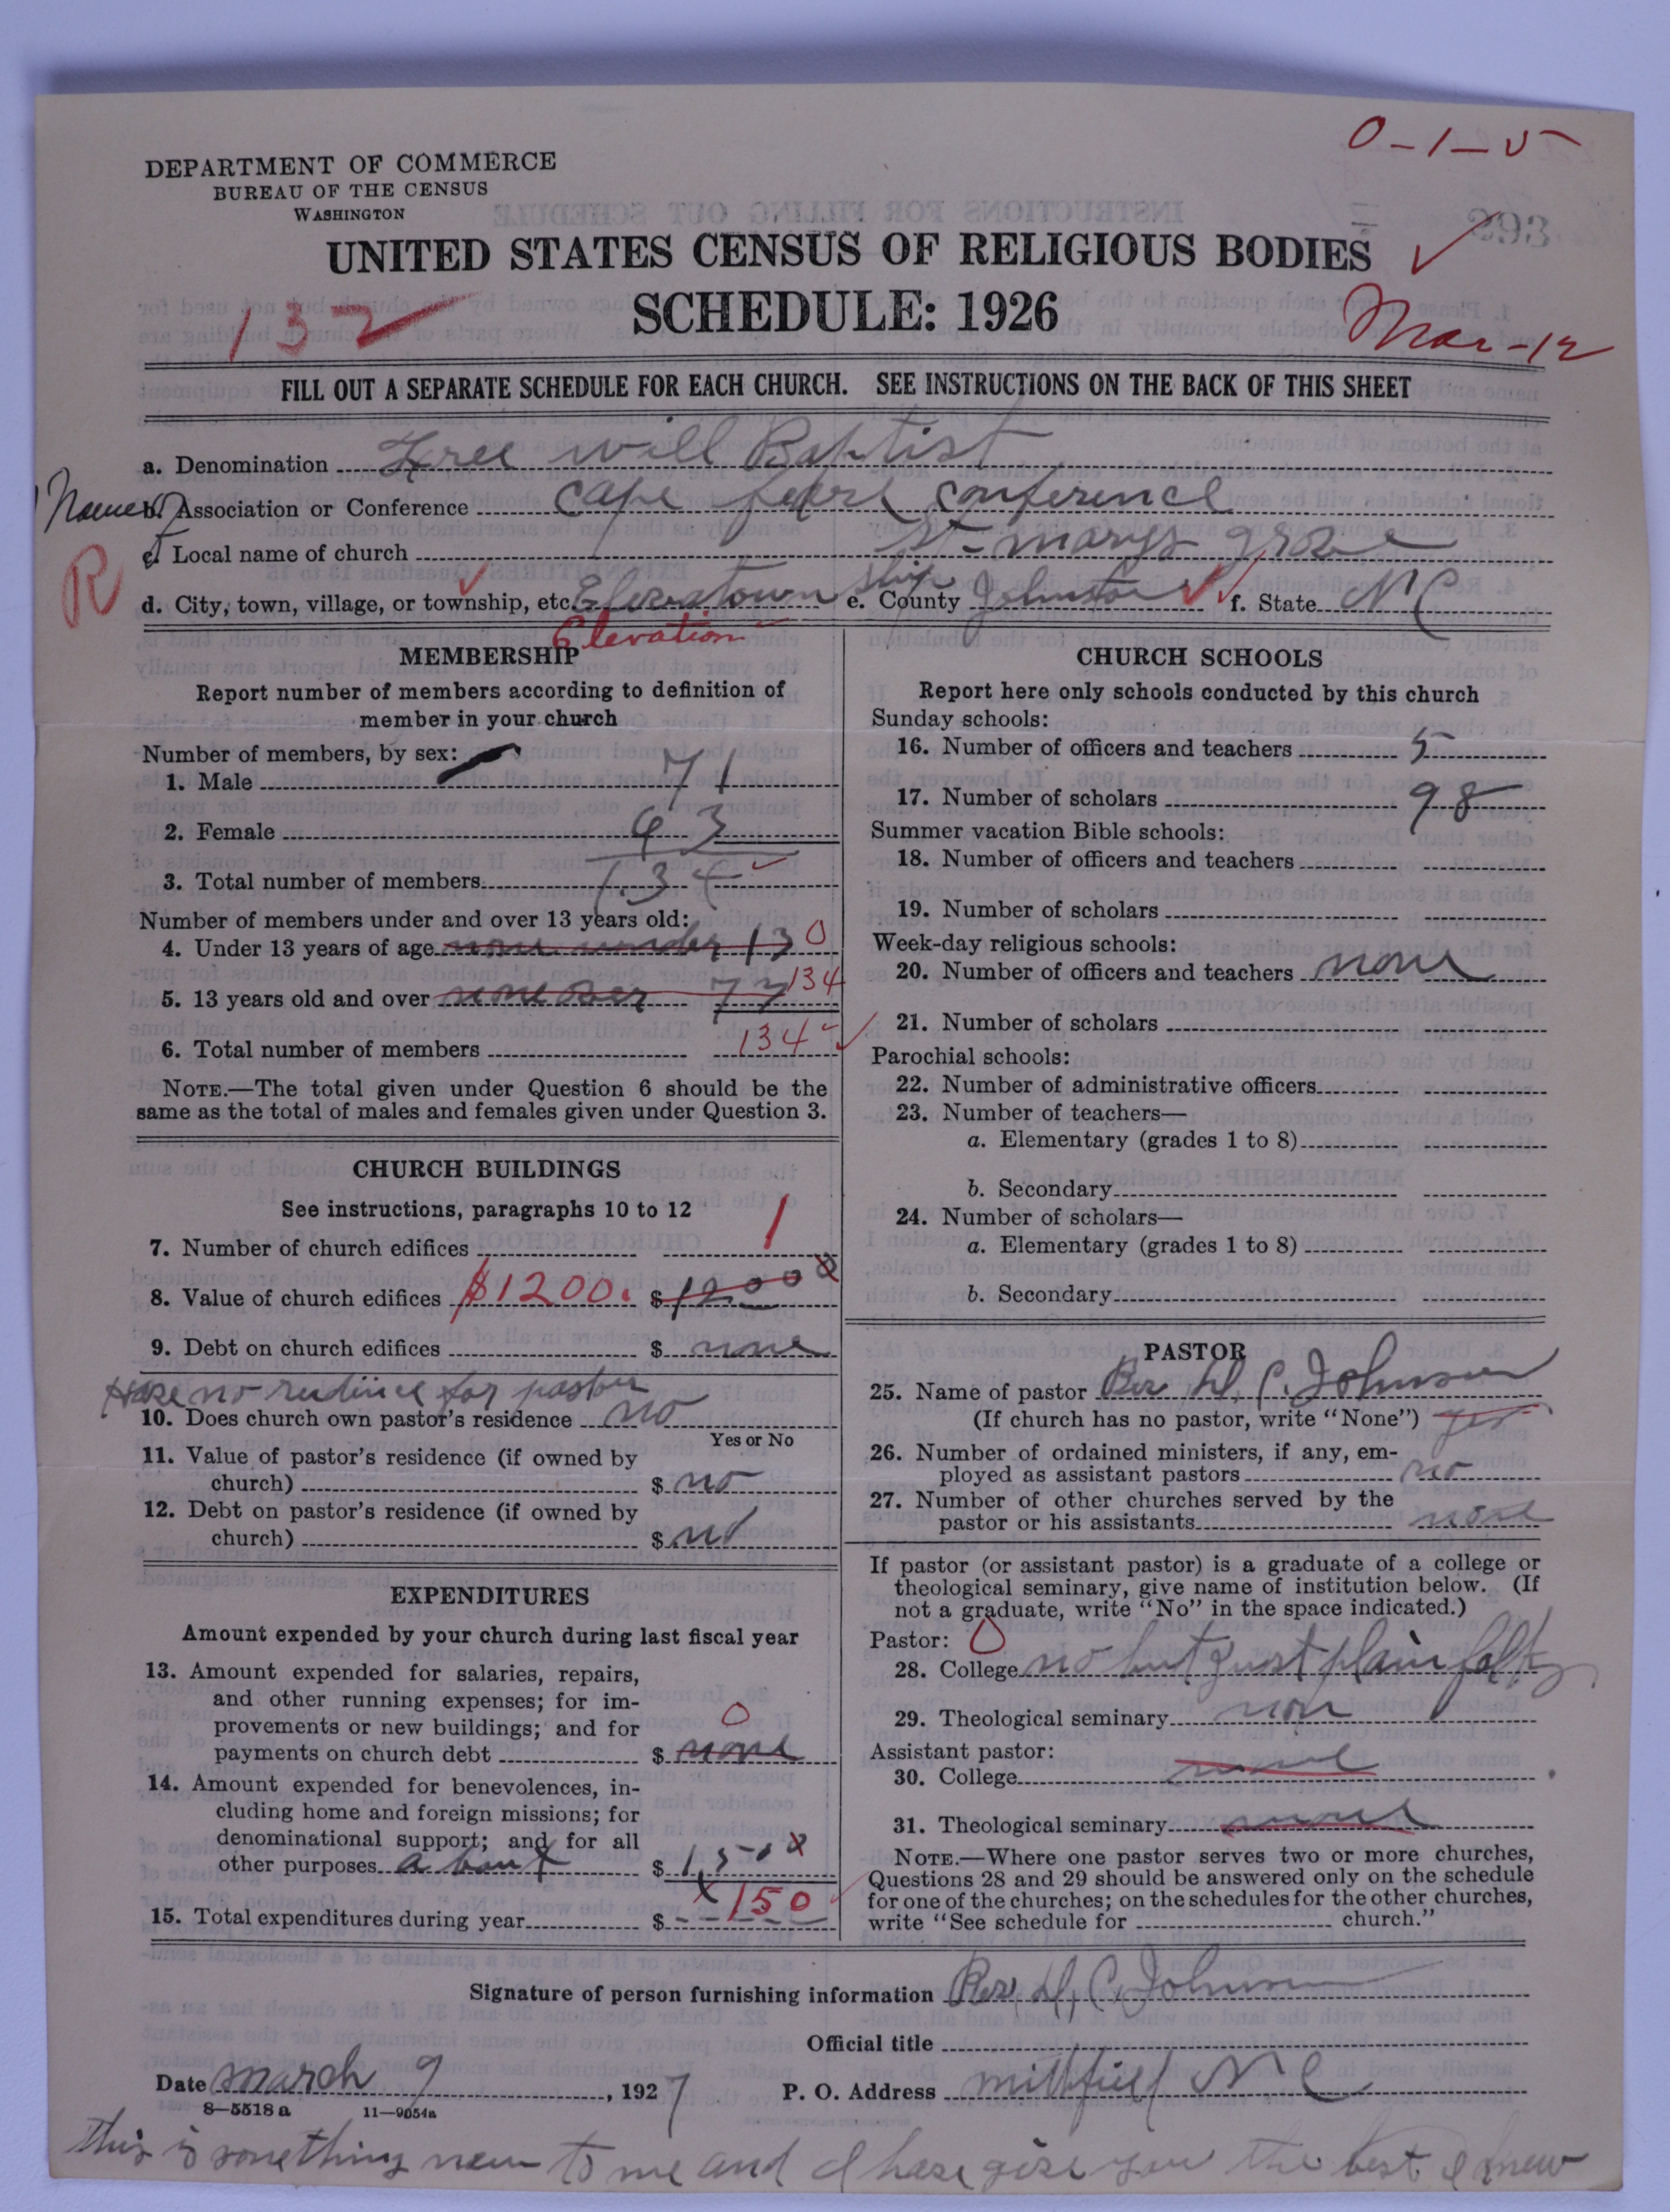 0-1-5
DEPARTMENT OF COMMERCE
BUREAU OF THE CENSUS
WASHINGTON
UNITED STATES CENSUS OF RELIGIOUS BODIES
SCHEDULE: 1926
132
Mar-12
FILL OUT A SEPARATE SCHEDULE FOR EACH CHURCH. SEE INSTRUCTIONS ON THE BACK OF THIS SHEET
a. Denomination Free will Baptist
b. Association or Conference Cape fear conference
c. Local name of church St marys grove
R
d. City, town, village, or township, etc. ship e. County Johnston f. State N C
Elevation
MEMBERSHIP
Report number of members according to definition of
member in your church
Number of members, by sex:
1. Male 71
2. Female 63
3. Total number of members 134
Number of members under and over 13 years old:
4. Under 13 years of age none under 13 0
5. 13 years old and over 134
6. Total number of members 134
NOTE.—The total given under Question 6 should be the
same as the total of males and females given under Question 3.
CHURCH BUILDINGS
See instructions, paragraphs 10 to 12
7. Number of church edifices 1
8. Value of church edifices $1200. $1200
9. Debt on church edifices $ none
Have no for pastor
10. Does church own pastor's residence no
Yes or No
11. Value of pastor's residence (if owned by
church) $ no
12. Debt on pastor's residence (if owned by
church) $ no
EXPENDITURES
Amount expended by your church during last fiscal year
13. Amount expended for salaries, repairs,
and other running expenses; for im-
provements or new buildings; and for
payments on church debt $ none 0
14. Amount expended for benevolences, in-
cluding home and foreign missions; for
denominational support; and for all
other purposes about $ 1.50 x
15. Total expenditures during year $ x 150
CHURCH SCHOOLS
Report here only schools conducted by this church
Sunday schools:
16. Number of officers and teachers 5
17. Number of scholars 98
Summer vacation Bible schools:
18. Number of officers and teachers
19. Number of scholars
Week-day religious schools:
20. Number of officers and teachers none
21. Number of scholars
Parochial schools:
22. Number of administrative officers
23. Number of teachers—
a. Elementary (grades 1 to 8)
b. Secondary
24. Number of scholars—
a. Elementary (grades 1 to 8)
b. Secondary
PASTOR
25. Name of pastor Rev H. C. Johnson
(If church has no pastor, write "None") yes
26. Number of ordained ministers, if any, em-
ployed as assistant pastors no
27. Number of other churches served by the
pastor or his assistants none
If pastor (or assistant pastor) is a graduate of a college or
theological seminary, give name of institution below. (If
not a graduate, write "No" in the space indicated.)
Pastor: 0
28. College no but Just plain
29. Theological seminary non
Assistant pastor:
30. College none
31. Theological seminary none
NOTE.—Where one pastor serves two or more churches,
Questions 28 and 29 should be answered only on the schedule
for one of the churches; on the schedules for the other churches,
write "See schedule for church."
Signature of person furnishing information Rev, H, C, Johnson
Official title
Date march 9, 1927 P. O. Address N C
8—5518a 11—9054a
this is something new to me and I have give you the best I know